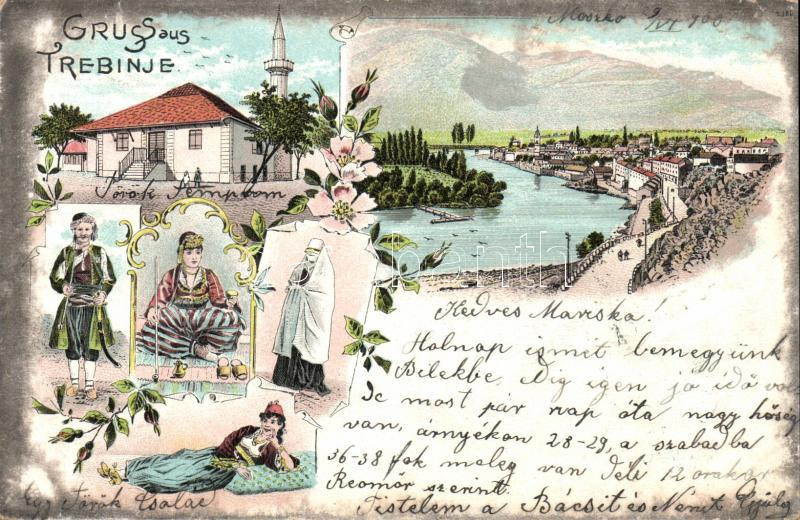 Moszko 9/VI 900
GRUSS aus
TREBINJE.
Török templom
Kedves Mariska!
Holnap ismét bemegyünk
Bilekbe. Dig igen jó idő vo
de most pár nap óta nagy hőség
van, árnyékon 28-29, a szabadba
36-38 fok meleg van déli 12 órakor
Reomör szerint.
Tisztelem a Bácsit és Nénit
Egy Török Család